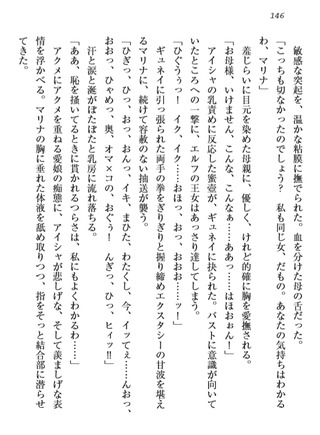 146
敏感な突起を、温かな粘膜に撫でられた。血を分けた母の舌だった。
「こっちも切なかったのでしょう？　私も同じ女、だもの。あなたの気持ちはわかる
わ、マリナ」
羞じらいに目元を染めた母親に、優しく、けれど的確に胸を愛撫される。
「お母様、いけません、こんな、こんなぁ……ああっ……はほおぉん！」
アイシャの乳責めに反応した蜜壺が、ギュネイに抉られた。バストに意識が向いて
いたところへの一撃に、エルフの王女はあっさり達してしまう。
「ひぐうぅっ！　イク、イク……おほっ、おっ、おおお……っ！」
ギュネイに引っ張られた両手の拳をぎりぎりと握り締めエクスタシーの甘波を堪え
るマリナに、続けて容赦のない抽送が襲う。
「ひぎっ、ひっ、おっ、おんっ、イキ、まひた、わたくし、今、イッてぇ……んおっ、
おおっ、ひゃめっ、奥、オマ×コの、おぐぅ！　んぎっ、ひっ、ヒィッ‼」
汗と涙と涎がぼたぼたと乳房に流れ落ちる。
「ああ、恥を掻いてるときに貫かれるつらさは、私にもよくわかるわ……」
アクメにアクメを重ねる愛娘の痴態に、アイシャが悲しげな、そして羨ましげな表
情を浮かべる。マリナの胸に垂れた体液を舐め取りつつ、指をそっと結合部に潜らせ
てきた。